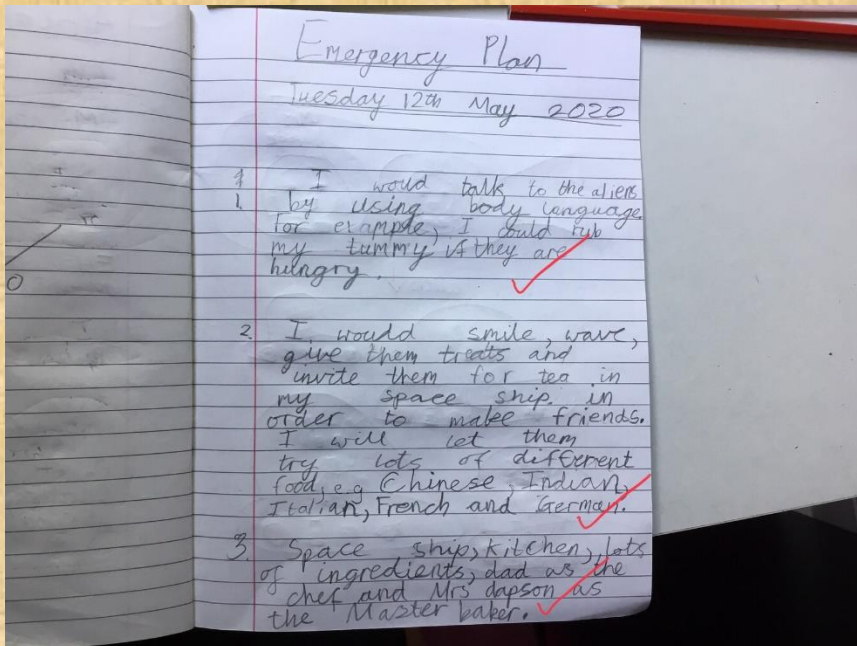 Emergency Plan
Tuesday 12th May 2020
1. I would talk to the aliens
by using body language.
For example, I could rub
my tummy if they are
hungry.
2. I would smile, wave,
give them treats and
invite them for tea in
my space ship in
order to make friends.
I will let them
try lots of different
food, e.g Chinese, Indian,
Italian, French and German.
3. Space ship, kitchen, lots
of ingredients, dad as the
chef and Mrs dapson as
the Master baker.